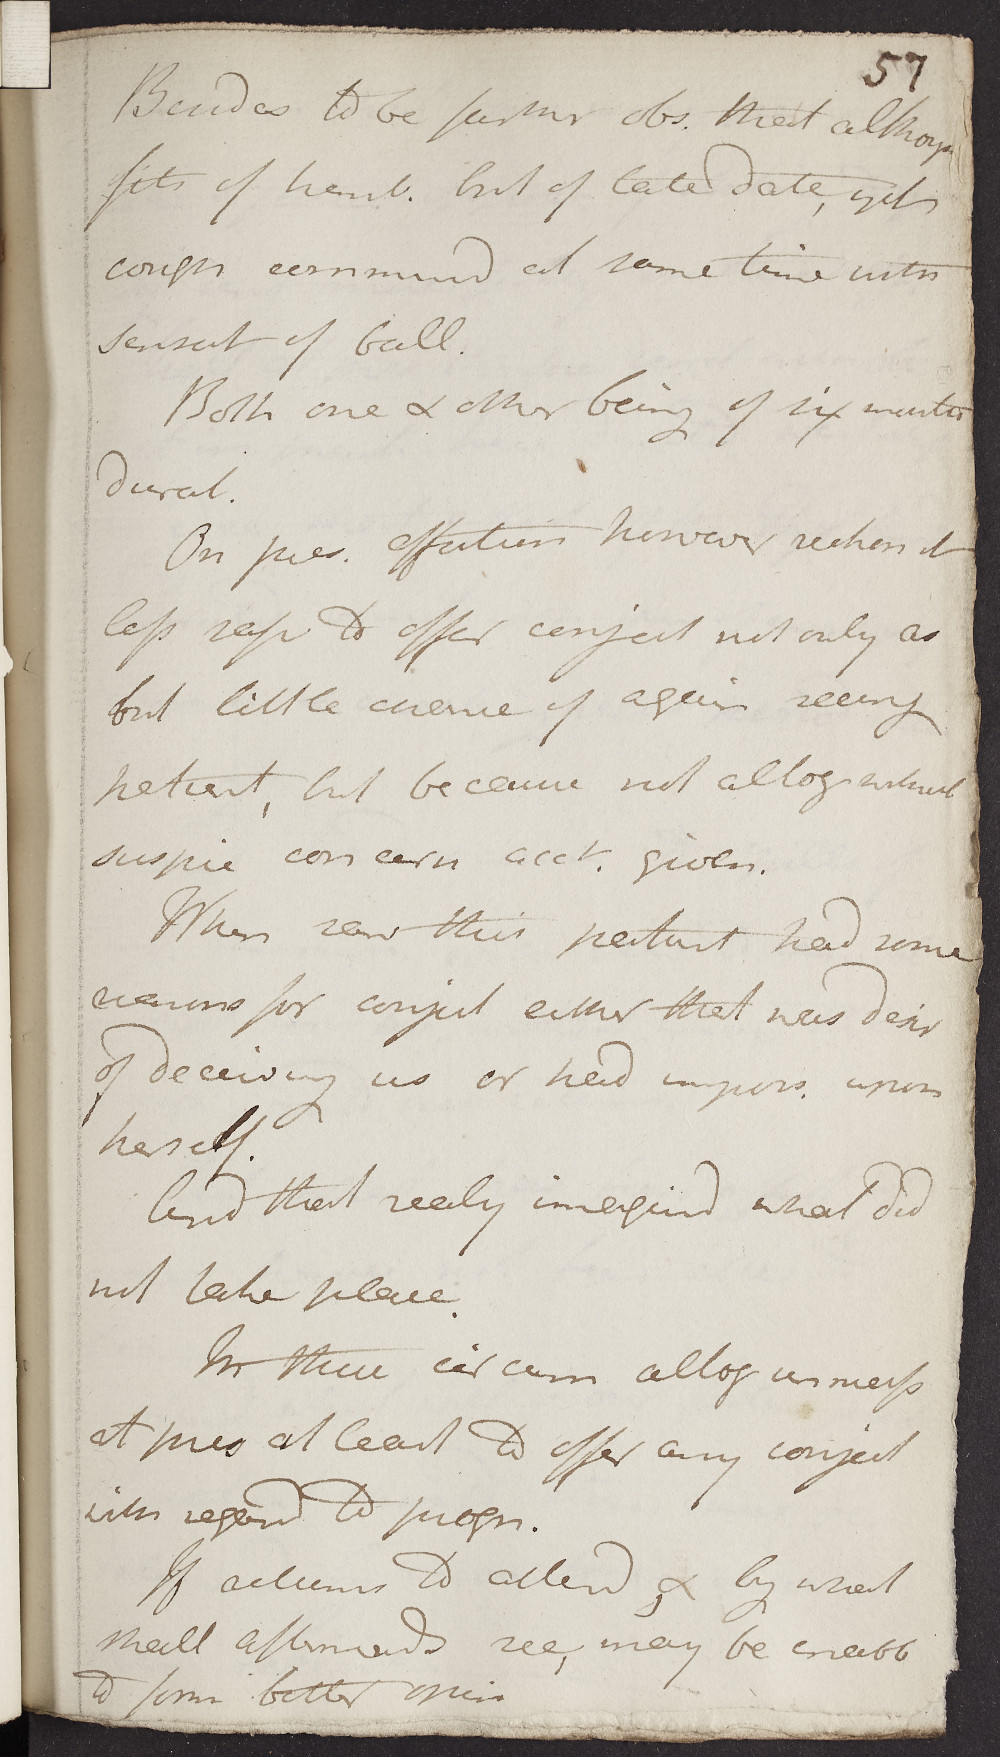 57
Besides to be further obs. that although
fits of hemt. but of late date, yet
cough commend at same time with
sensat of ball.
Both one & other being of six months
durat.
On pres. affection however reckon it
less resp to offer conject not only as
but little chance of again seeing
patient, but because not altog without
suspic concern acct. given.
When saw this patient had some
reasons for conject either that was desir
of deceiving us or had impos. upon
herself.
And that realy imagind what did
not take place.
In these circum altog unness
at pres at least to offer any conject
with regard to progn.
If returns to attend, & by what
shall afterwards see, may be enabb
to form better opin